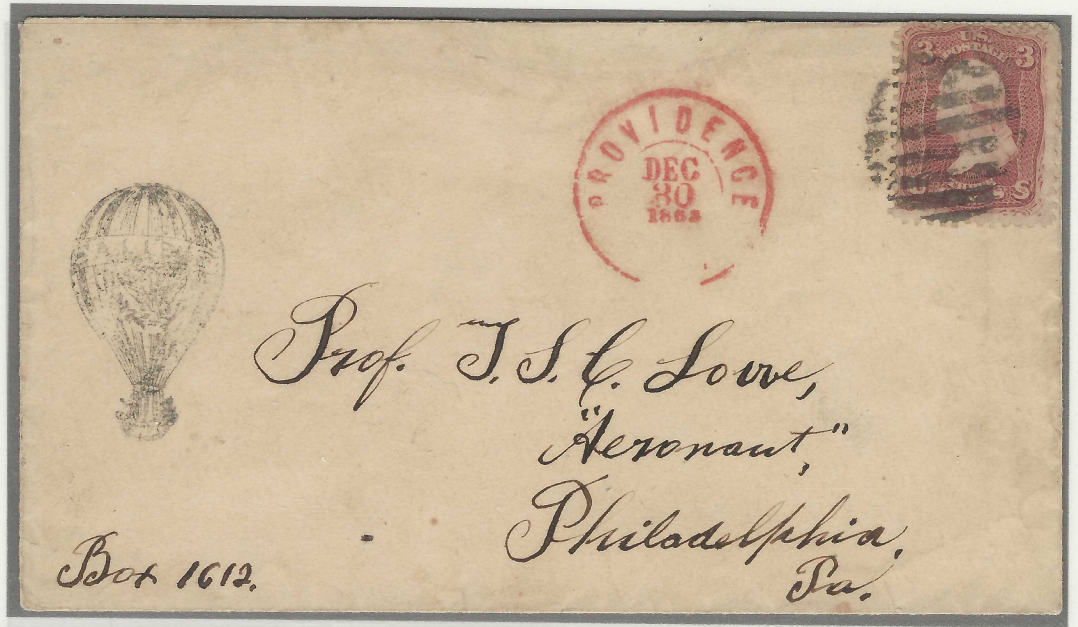 3 U.S. 3
POSTAGE
PROVIDENCE
DEC
30
1863
Prof. T. S. C. Lowe,
"Aeronaut,"
Philadelphia,
Pa.
Box 1612.